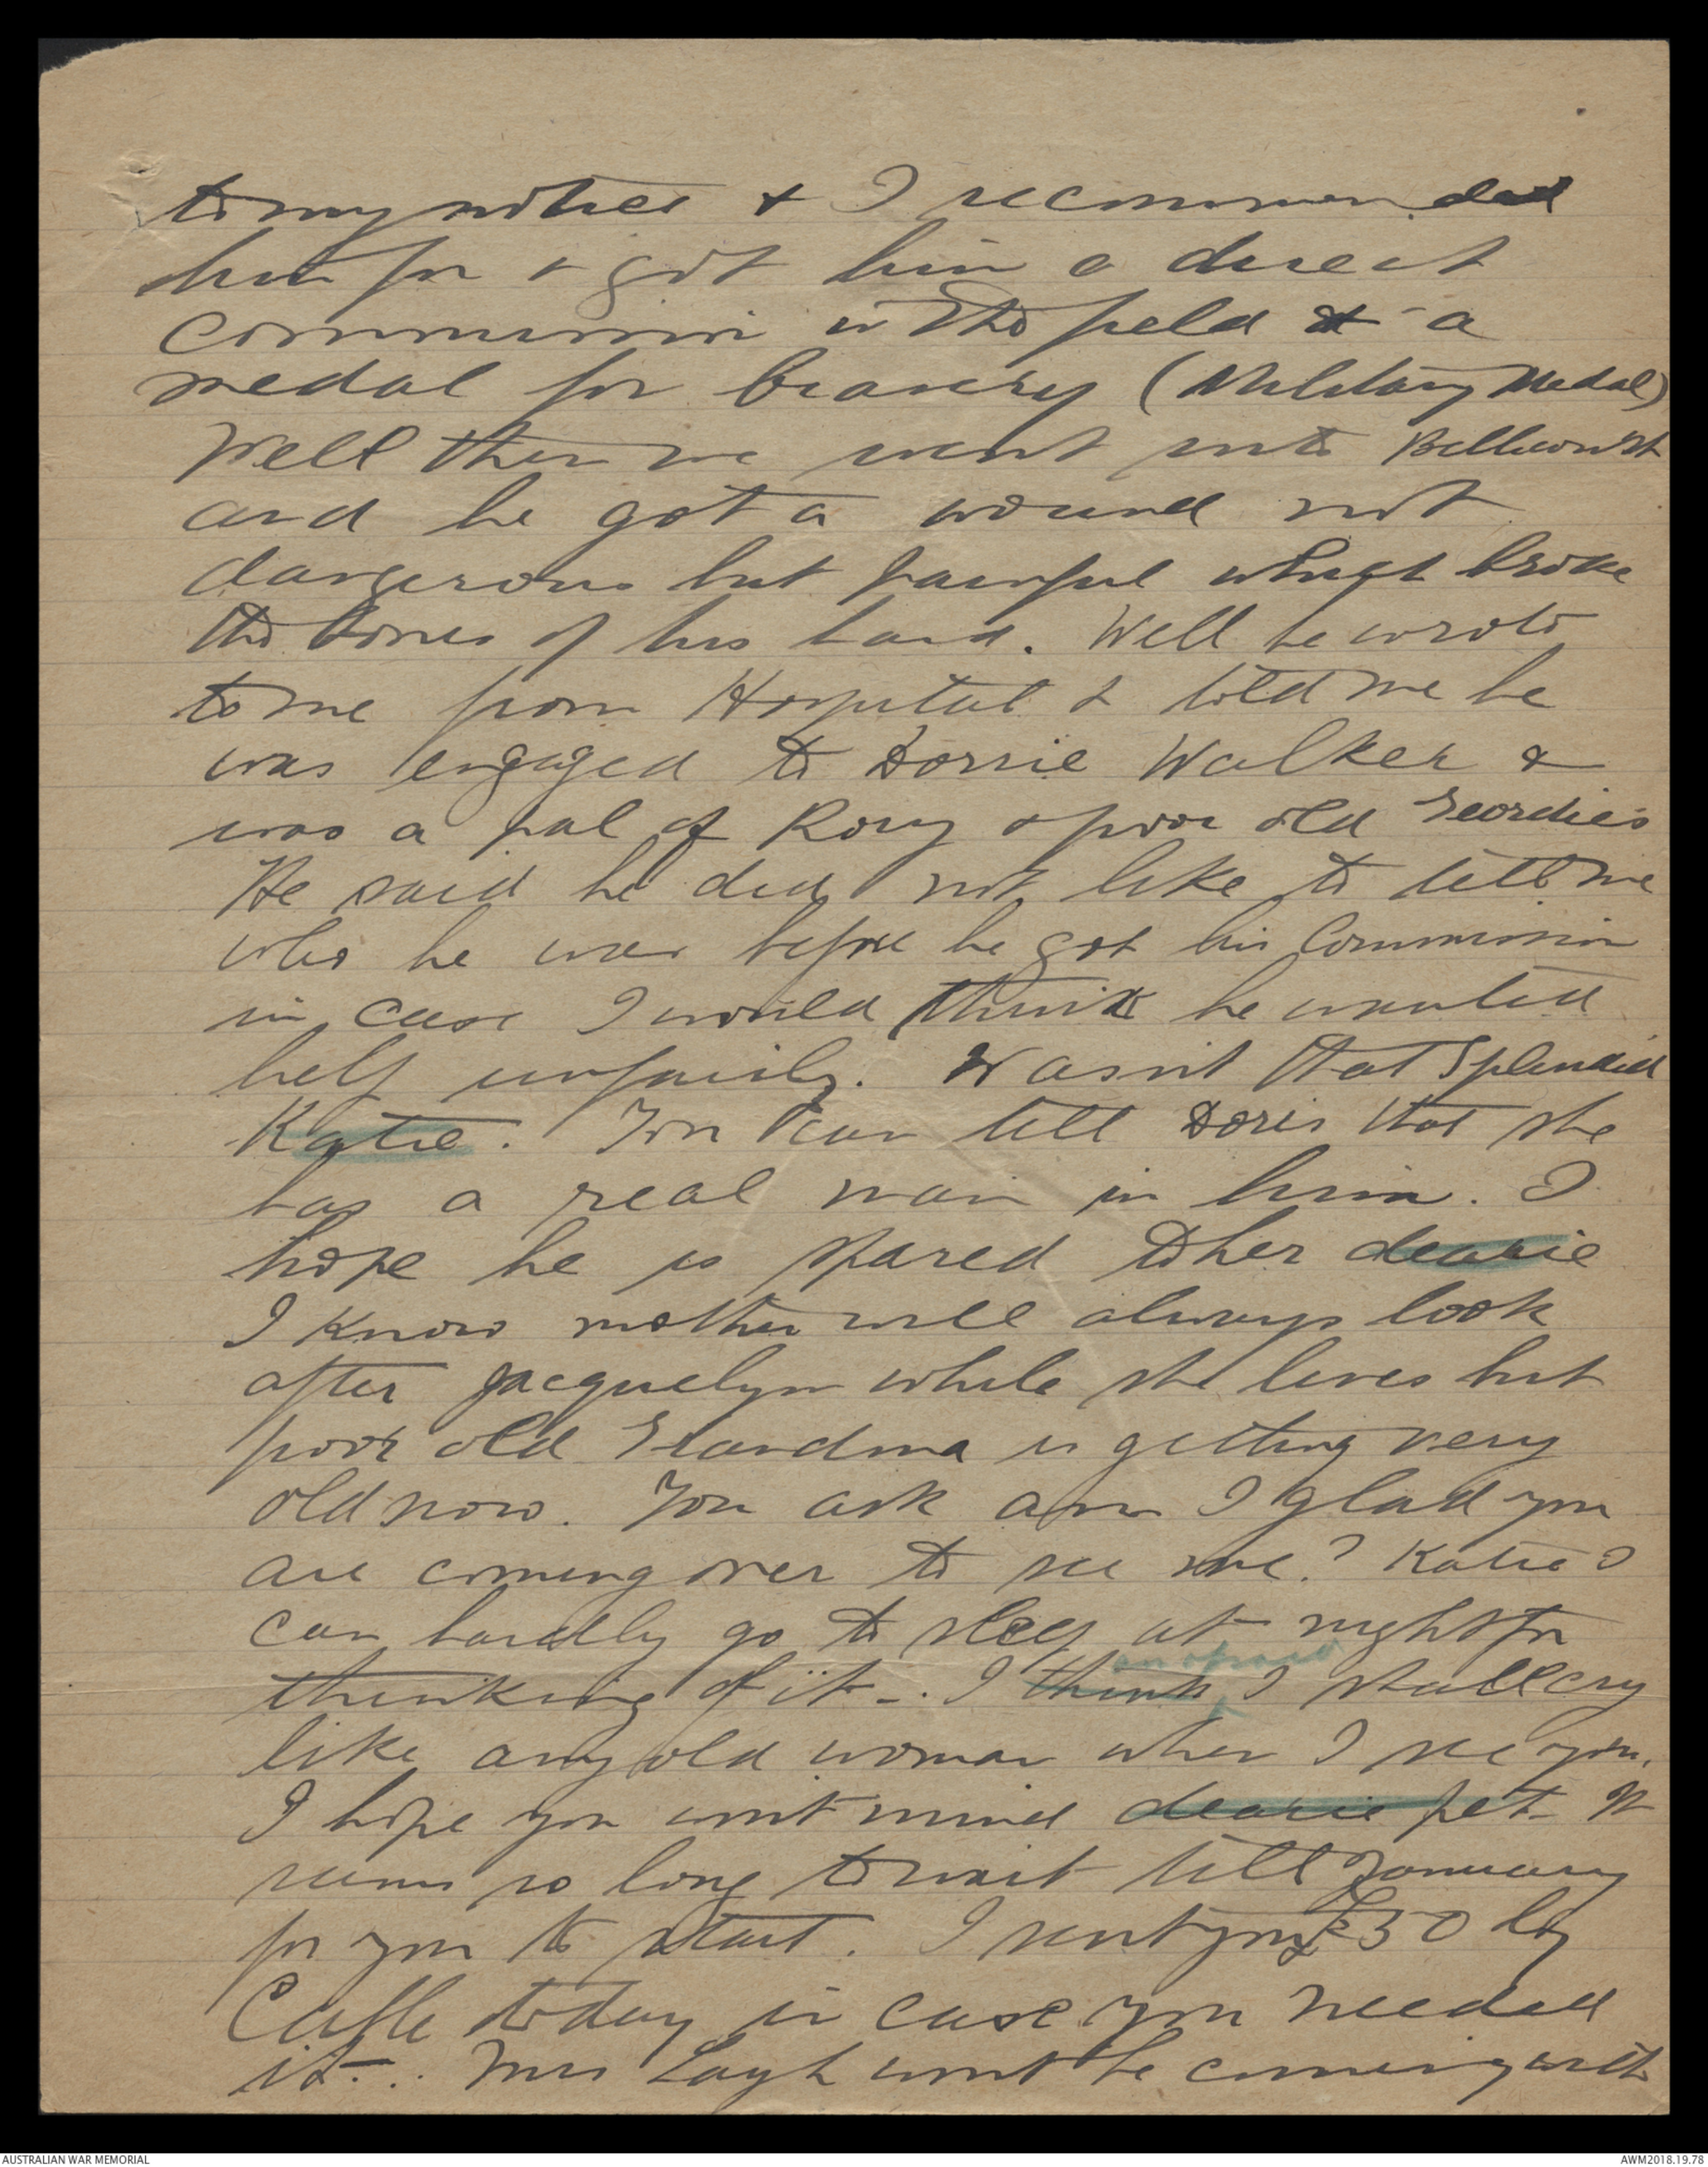 to my notice & I recommended
him for & got him a direct
Commission in the field & a
medal for bravery (Military Medal)
Well then we went into Bullecourt
and he got a wound not
dangerous but painful which broke
the bones of his hand. Well he wrote
to me from Hospital & told me he
was engaged to Dorrie Walker &
was a pal of Rory & poor old Geordie's
He said he did not like to tell me
who he was before he got his Commission
in case I would think he wanted
help unfairly. Wasn't that Splendid
Katie. You can tell Doris that she
has a real man in him. I
hope he is spared to her dearie
I know mother will always look
after Jacquelyn while she lives but
poor old Grandma is getting very
old now. You ask am I glad you
are coming over to see me? Katie I
can hardly go to sleep at night for
am afraid
thinking of it -. I think I shall cry
like any old woman when I see you.
I hope you wont mind dearie pet. It
seems so long to wait till January
for you to start. I sent you £50 by
Cable today in case you needed
it -. Mrs wont be coming with
AUSTRALIAN WAR MEMORIAL
AWM2018.19.78